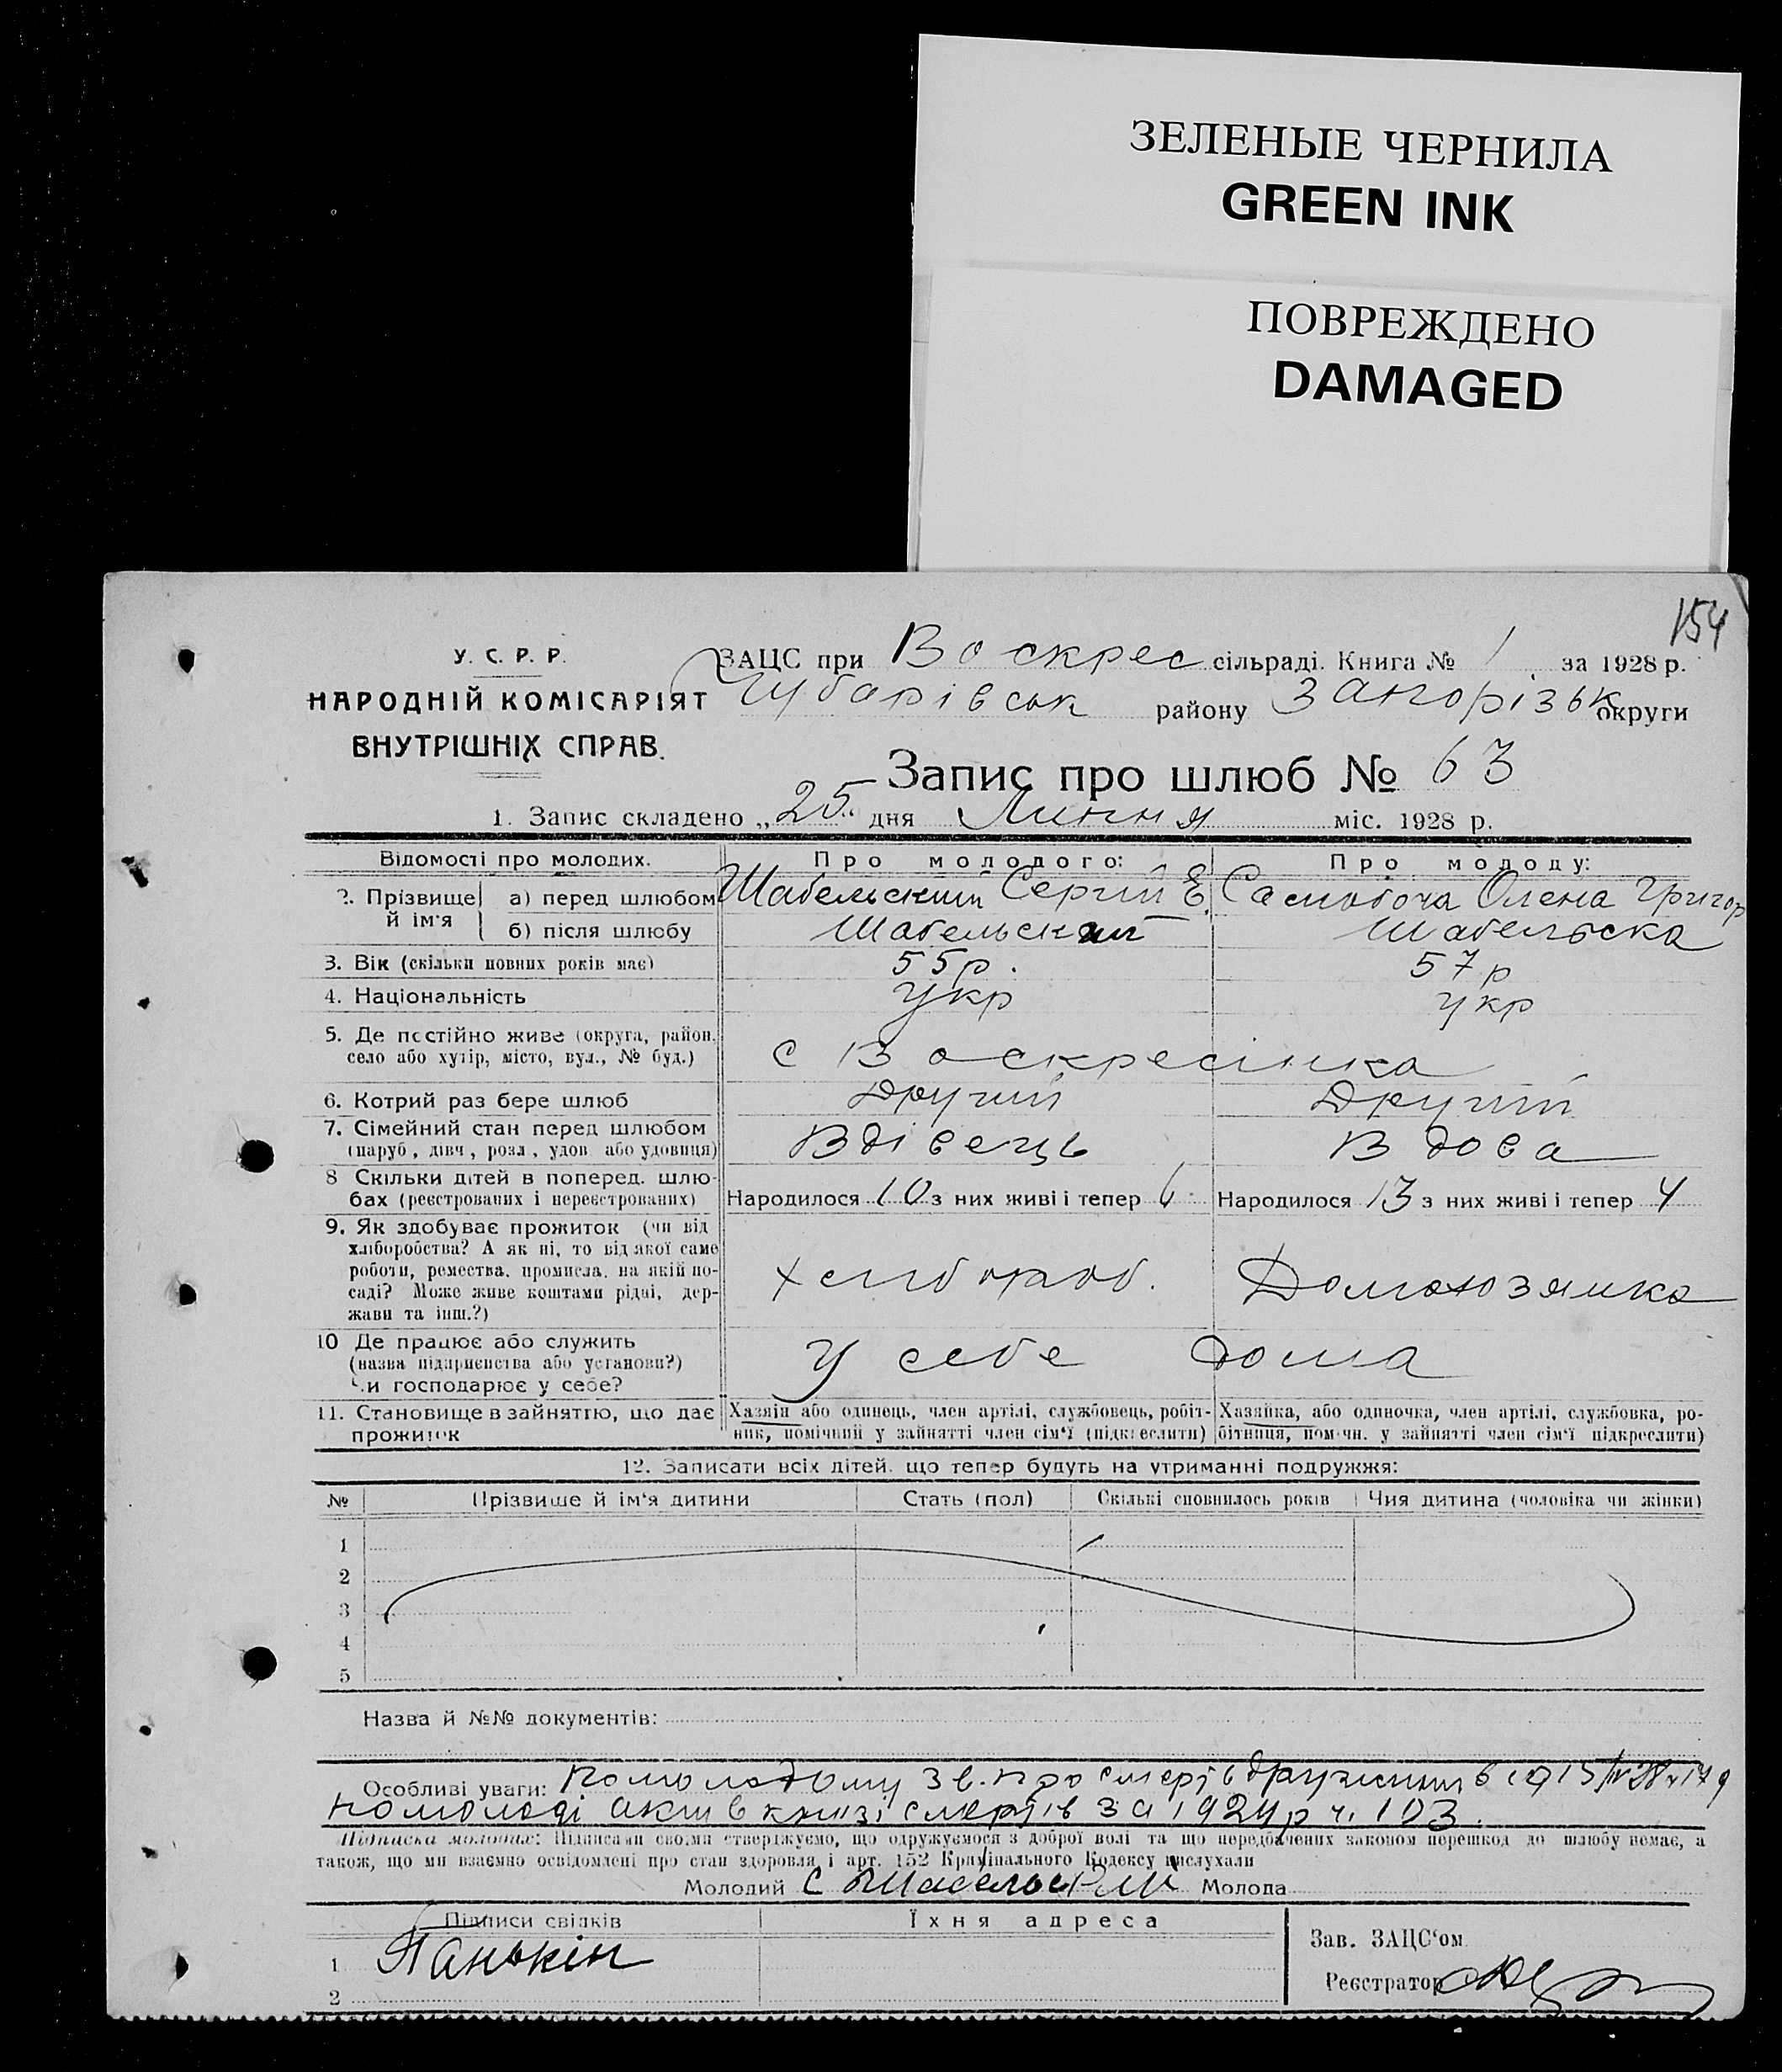 ЗЕЛЕНЫЕ ЧЕРНИЛА
GREEN INK
ПОВРЕЖДЕНО
DAMAGED
154
У. С. Р. Р.
НАРОДНІЙ КОМІСАРІЯТ
ВНУТРІШНІХ СПРАВ.
ЗАЦС при Воскрес сільраді. Книга № 1 за 1928 р.
Чубарівськ району Запорізьк округи
Запис про шлюб № 63
1. Запис складено „25“ дня Липня міс. 1928 р.
Відомості про молодих. Про молодого: Про молоду:
2. Прізвище й ім'я а) перед шлюбом Шабельский Сергій Е. Олена Григор
б) після шлюбу Шабельский Шабельска
3. Вік (скільки повних років має) 55 р. 57 р
4. Національність укр укр
5. Де постійно живе (округа, район,
село або хутір, місто, вул., № буд.) с Воскресінка
6. Котрий раз бере шлюб Другий Другий
7. Сімейний стан перед шлюбом
(паруб., дівч., розл., удов. або удовиця) Вдівець Вдова
8 Скільки дітей в поперед. шлю-
бах (реєстрованих і нереєстрованих) Народилося 10 з них живі і тепер 6 Народилося 13 з них живі і тепер 4
9. Як здобуває прожиток (чи від
хліборобства? А як ні, то від якої саме
роботи, ремества, промисла, на якій по-
саді? Може живе коштами рідні, дер-
жави та інш.?) Хлибороб. Домохозяйка
10 Де працює або служить
(назва підприємства або установи?)
Чи господарює у себе? У себе дома
11. Становище в зайняттю, що дає
прожиток
Хазяїн або одинець, член артілі, службовець, робіт-
ник, помічний у зайнятті член сім'ї (підкреслити)
Хазяйка, або одиночка, член артілі, службовка, ро-
бітниця, помічн. у зайнятті член сім'ї підкреслити)
12. Записати всіх дітей, що тепер будуть на утриманні подружжя:
№ Прізвище й ім'я дитини Стать (пол) Скількі сповнилось років Чия дитина (чоловіка чи жінки)
1
2
3
4
5
Назва й №№ документів:
Особливі уваги: По молодому зв. про смерть дружини в 1915
по молоді акт в книзі смертів за 1924 р ч. 103.
Підписка молодих: Підписами своїми стверджуємо, що одружуємося з доброї волі та що передбачених законом перешкод до шлюбу немає, а
також, що ми взаємно освідомлені про стан здоровля і арт. 152 Крімінального Кодексу вислухали
Молодий С Шабельский Молода
Підписи свідків Їхня адреса
1 Панькін
2
Зав. ЗАЦС'ом
Реєстратор